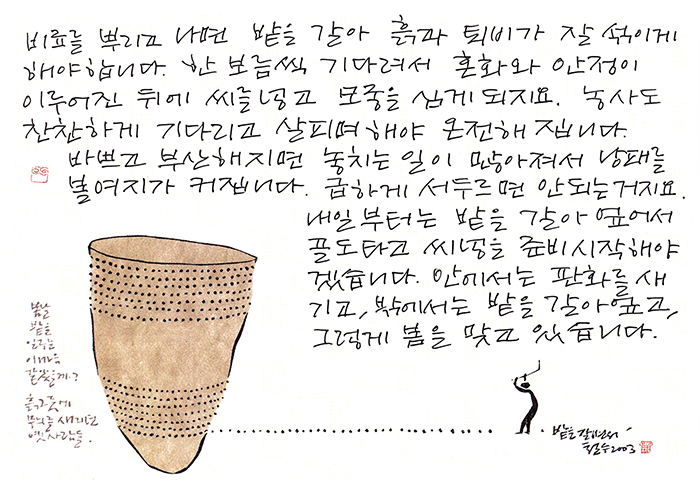 비료를 뿌리고 나면 밭을 갈아 흙과 퇴비가 잘 섞이게
해야합니다. 한 보름씩 기다려서 혼화와 안정이
이루어진 뒤에 씨를 넣고 모종을 심게 되지요. 농사도
찬찬하게 기다리고 살피며 해야 온전해집니다.
바쁘고 부산해지면 놓치는 일이 많아져서 낭패를
볼 여지가 커집니다. 급하게 서두르면 안되는거지요.
내일부터는 밭을 갈아 엎어서
골도타고 씨넣을 준비 시작해야
겠습니다. 안에서는 판화를 새
기고, 밖에서는 밭을 갈아엎고,
그렇게 봄을 맞고 있습니다.
봄날
밭을
일구는
이 마음
같았을까?
흙그릇에
무늬를 새기던
옛사람들.
밭을 갈면서
철수 2003